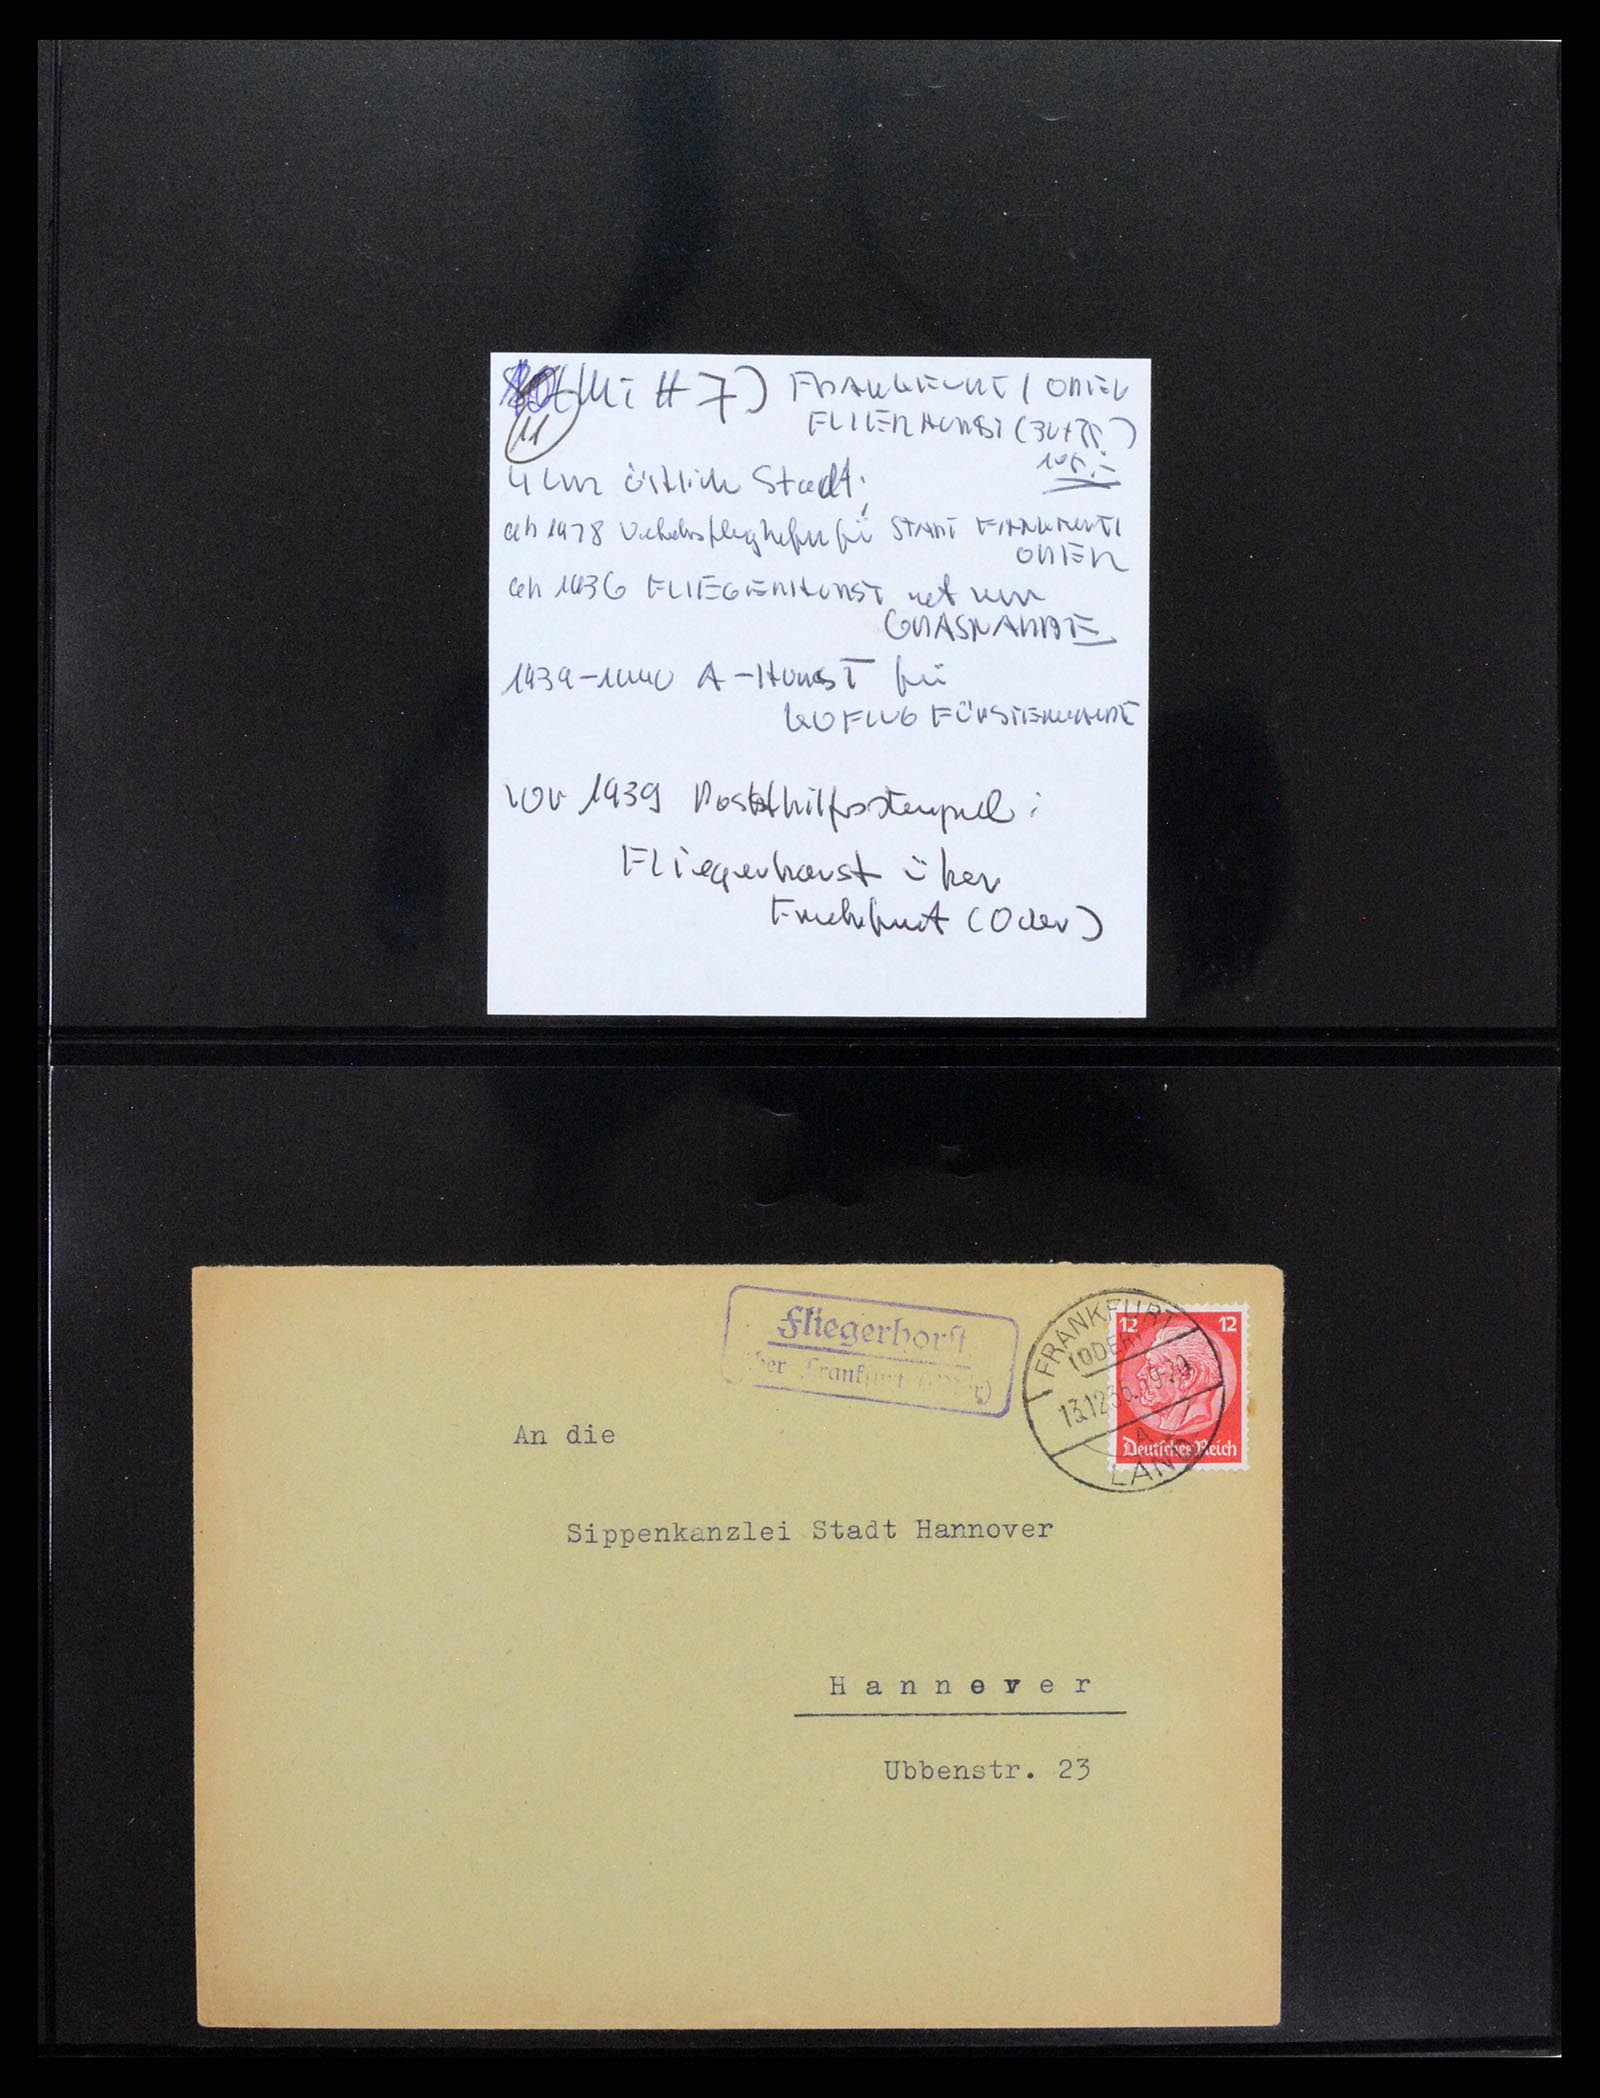 (Mi # 7) FRANKFURT / ODER
FLIEGERHORST (30+75)
105.-
11
4 km östlich Stadt;
ab 1928 Verkehrsflughafen für STADT FRANKFURT/
ODER
ab 1936 FLIEGERHORST mit nur
GRASNARBE
1939-1940 A-Horst für
KOFLUG FÜRSTENWALDE
vor 1939 Posthilfsstempel:
Fliegerhorst über
Frankfurt (Oder)
Fliegerhorst
über Frankfurt (Oder)
FRANKFURT
(ODER)
13.12.36.19-20
A
LAND
12 12
Deutsches Reich
An die
Sippenkanzlei Stadt Hannover
Hannover
Ubbenstr. 23